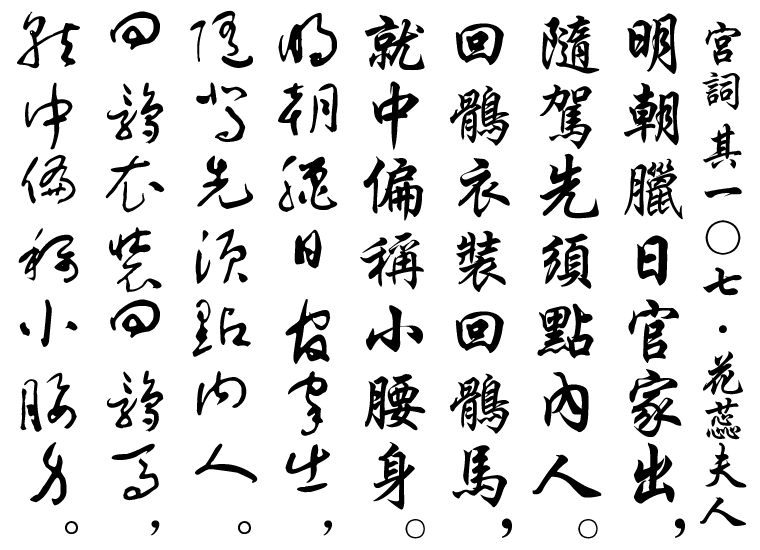 宮詞 其一〇七・花蕊夫人
明朝臘日官家出，
隨駕先須點內人。
回鶻衣裝回鶻馬，
就中偏稱小腰身。
明朝臘日官家出，
隨駕先須點內人。
回鶻衣裝回鶻馬，
就中偏稱小腰身。